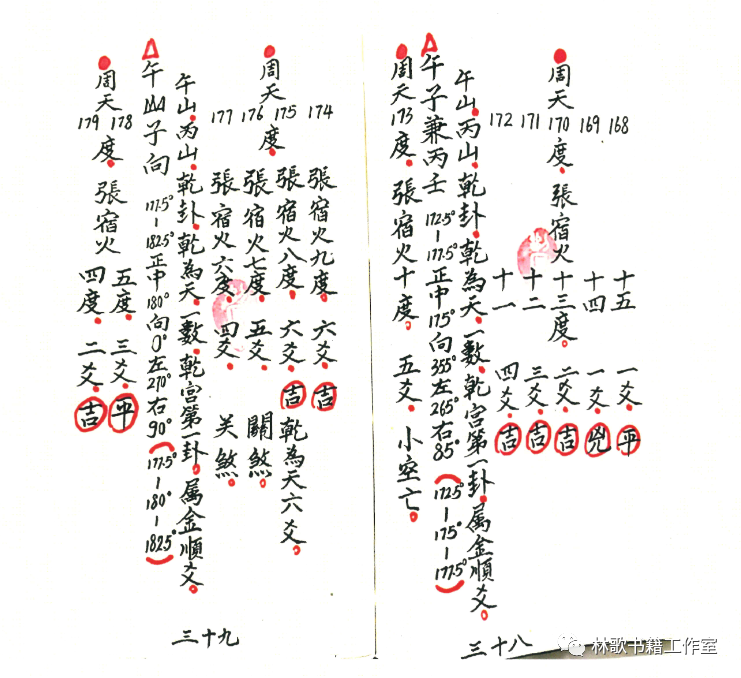 168 十五 一爻。平
169 十四 一爻。凶
周天170度。張宿火十三度。二爻。吉
171 十二 三爻。吉
172 十一 四爻。吉
午山。丙山。乾卦。乾為天。一數。乾宮第一卦。属金順爻。
午子兼丙壬 172.5°-177.5°正中175°向355°左265°右85°(172.5°-175°-177.5°)
周天173度。張宿火十度。 五爻。小空亡。
三十八
174 張宿火九度。六爻。吉
周天度。
175 張宿火八度。六爻。吉 乾為天六爻。
176 張宿火七度。五爻。關煞。
177 張宿火六度。四爻。关煞。
午山。丙山。乾卦。乾為天。一數。乾宮第一卦。属金順爻。
午山子向 177.5°-182.5°正中180°向0°左270°右90°(177.5°-180°-182.5°)
周天度。張宿火
178 五度。三爻。平
179 四度。二爻。吉
三十九
林歌书籍工作室